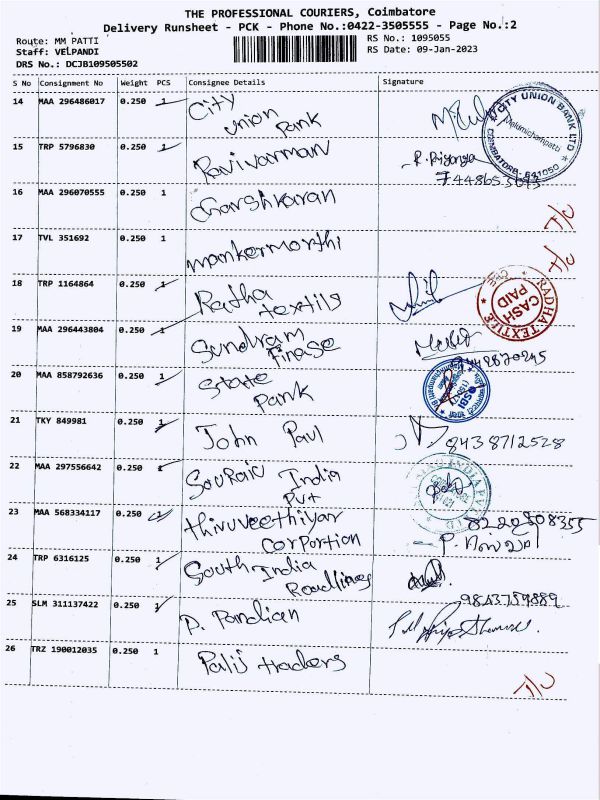 THE PROFESSIONAL COURIERS, Coimbatore
Delivery Runsheet - PCK - Phone No.:0422-3505555 - Page No.:2
Route: MM PATTI
Staff: VELPANDI
DRS No.: DCJB109505502
RS No.: 1095055
RS Date: 09-Jan-2023
S No Consignment No Weight PCS Consignee Details Signature
14 MAA 296486017 0.250 1 City
union
Bank
CITY UNION BANK LTD
COIMBATORE- 641050
15 TRP 5796830 0.250 1 Ravivarman
R. Priyanga
16 MAA 296070555 0.250 1 Gharshkaran
T/U
17 TVL 351692 0.250 1 mankermorthi
T/U
18 TRP 1164864 0.250 1 Ratha
textils
RADHA TEXTILE
CASH
PAID
19 MAA 296443804 0.250 1 Sundram
finase
20 MAA 858792636 0.250 1 State
Bank
SBI
21 TKY 849981 0.250 1 John Paul
8438712528
22 MAA 297556642 0.250 1 India
Pvt
23 MAA 568334117 0.250 thiruveethiyar
Corportion
8220808355
24 TRP 6316125 0.250 1 South India
Roadlines
25 SLM 311137422 0.250 1 P. Pandian
9843759889
26 TRZ 190012035 0.250 1 Palij traders
T/U